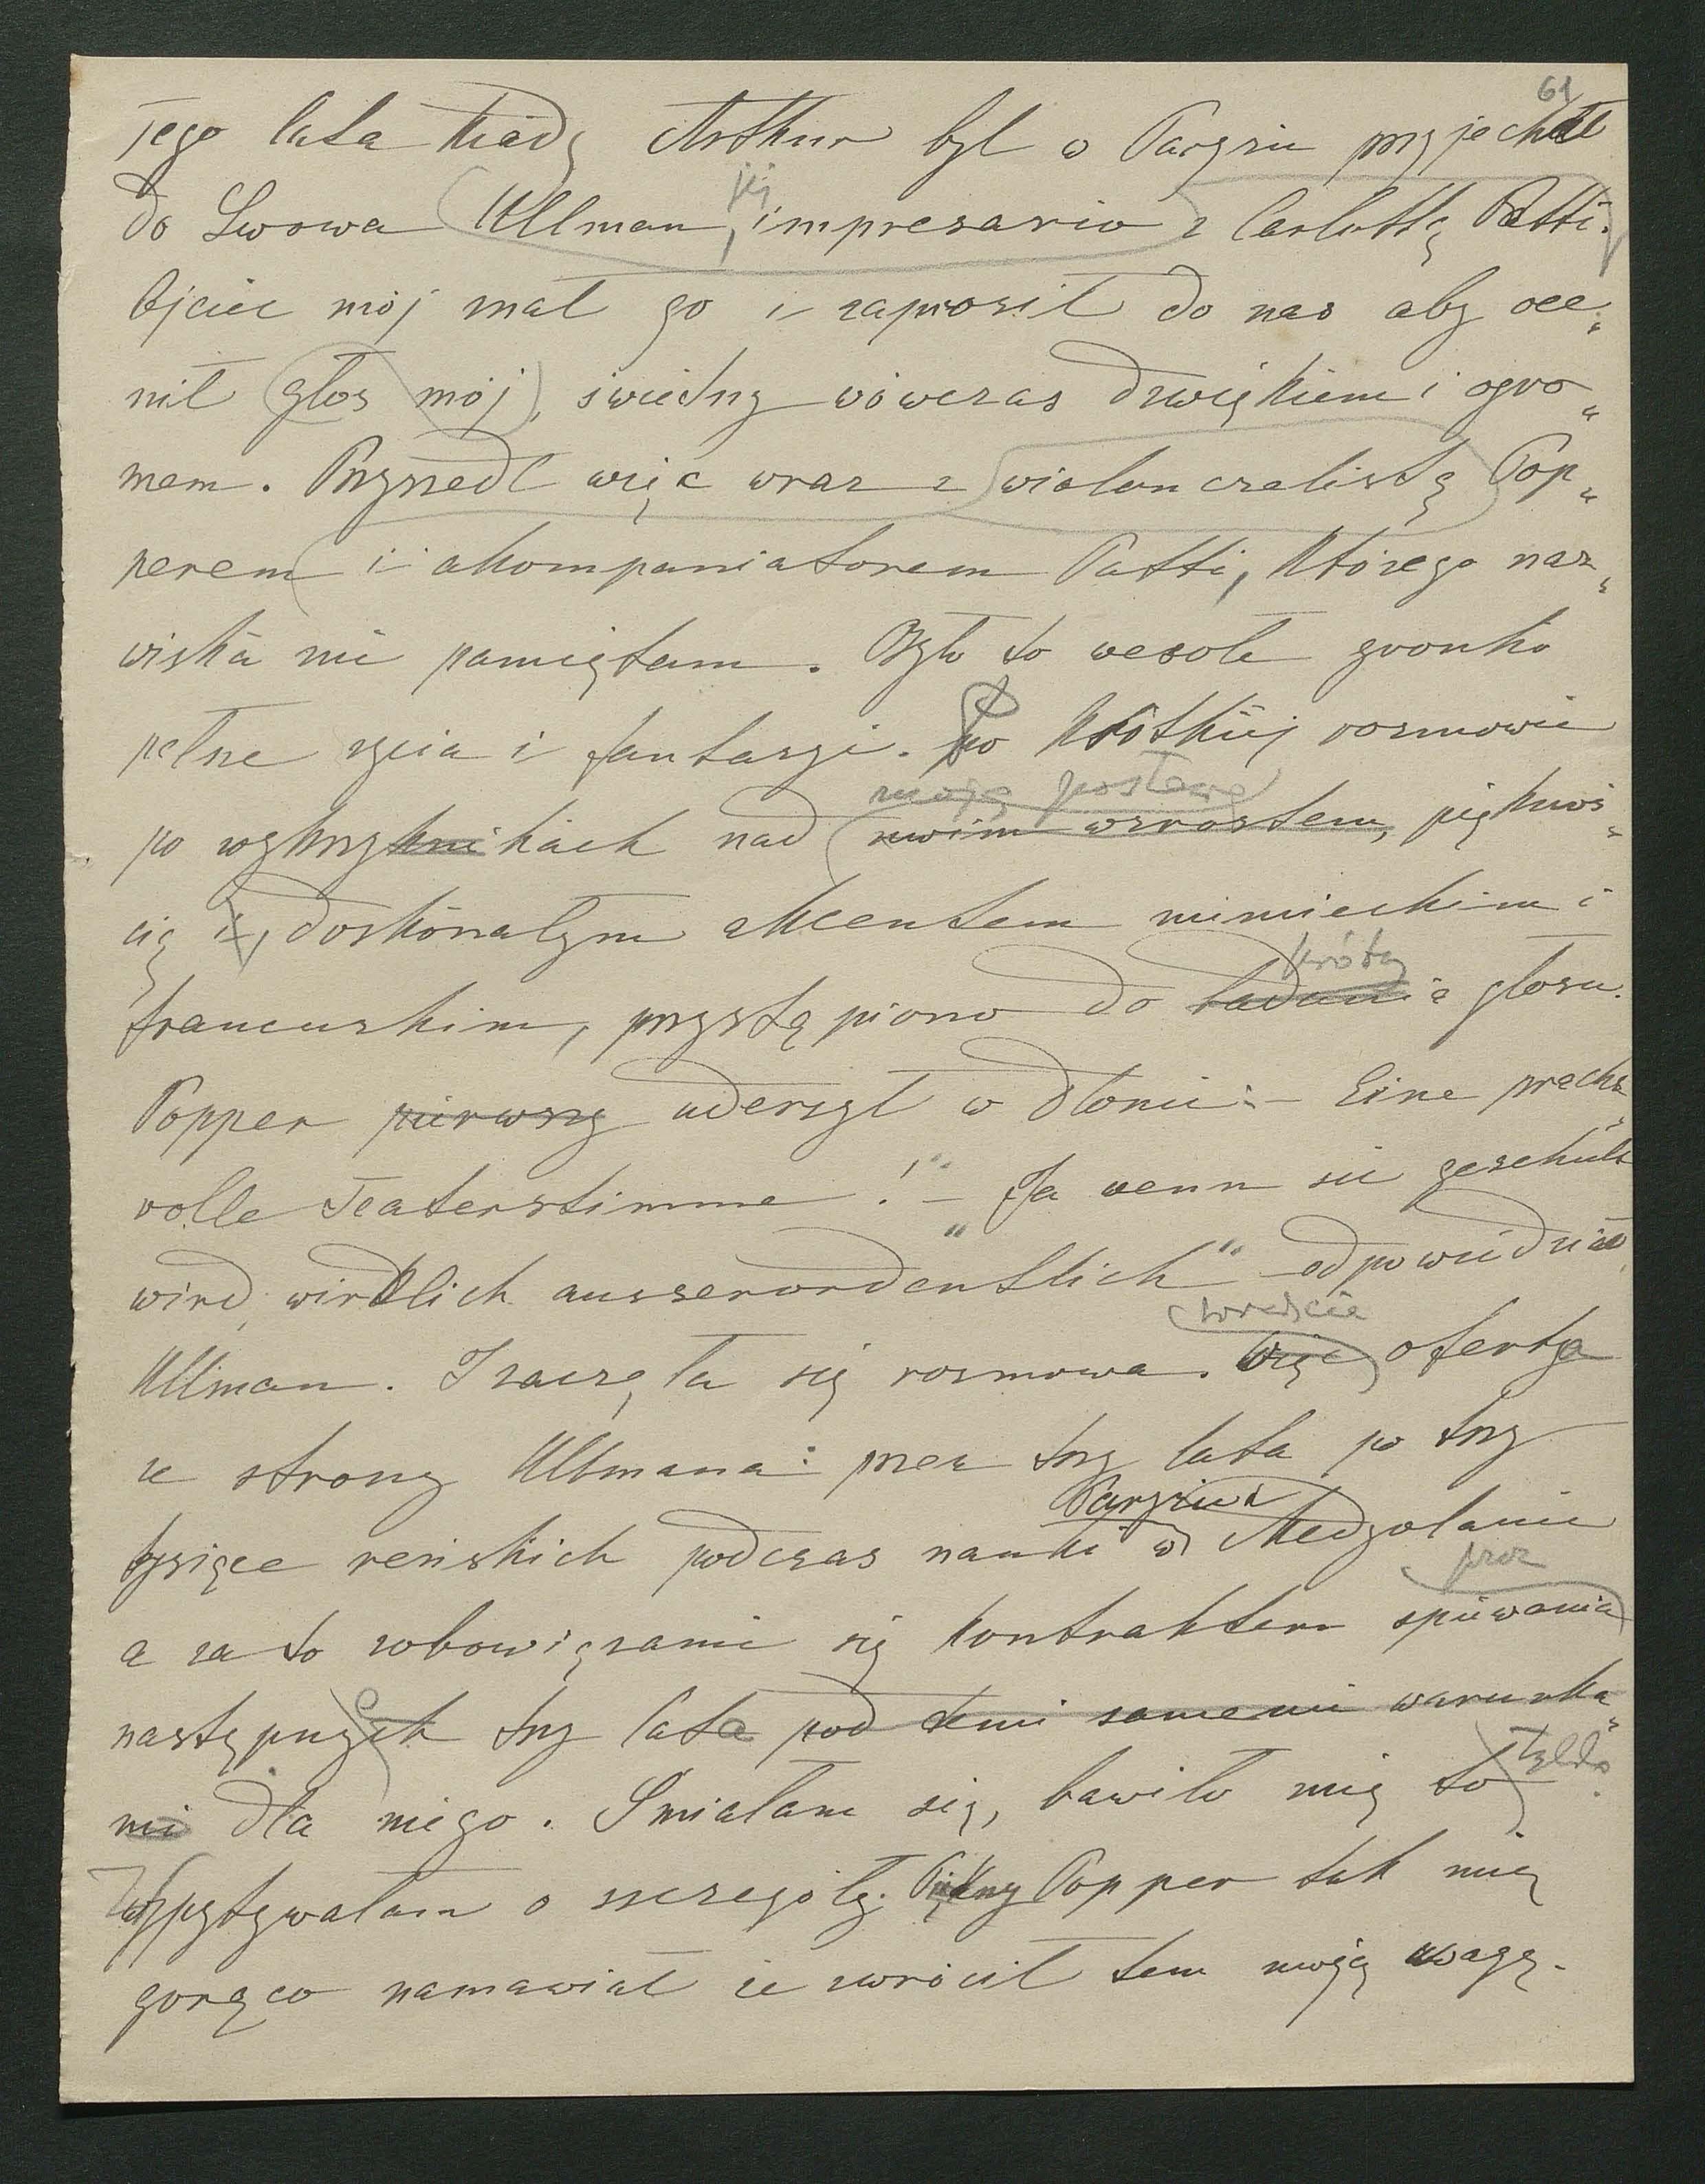 61
Tego lata kiedy Arthur był w Paryżu przyjechał
jej
do Lwowa Ullman, impresario z Carlottą Patti.
Ojciec mój znał go i zaprosił do nas aby oce„
nił głos mój, świetny wówczas dzwiękiem i ogro„
mem. Przyszedł więc wraz z wiolonczelistą Pop„
perem i akompaniatorem Patti, którego naz„
wiska nie pamiętam. Było to wesołe gronko
pełne życia i fantazyi. Po krótkiej rozmowie
moją postawą
po wykrzyknikach nad moim wzrostem, pięknoś„
cią i, doskonałym akcentem niemieckim i
próby
francuskim, przystąpiono do badania głosu.
Popper pierwszy uderzył w dłonie: – Eine pracht„
volle Teaterstimme!" – „Ja wenn sie geschult
wird, wirklich ausserordentlich" – odpowiedział
wreszcie
Ullman. I zaczęła się rozmowa. Więc oferta
ze strony Ullmana: przez trzy lata po trzy
Paryżu i
tysiące reńskich podczas nauki w Medyolanie
prez
a za to zobowiązanie się kontraktem śpiewania
następnych trzy lata pod temi samemi warunka„
tylko.
mi dla niego. Śmiałam się, bawiło mię to
Wypytywałam o szczegóły. Piękny Popper tak mię
gorąco namawiał że zwrócił tem moją uwagę.